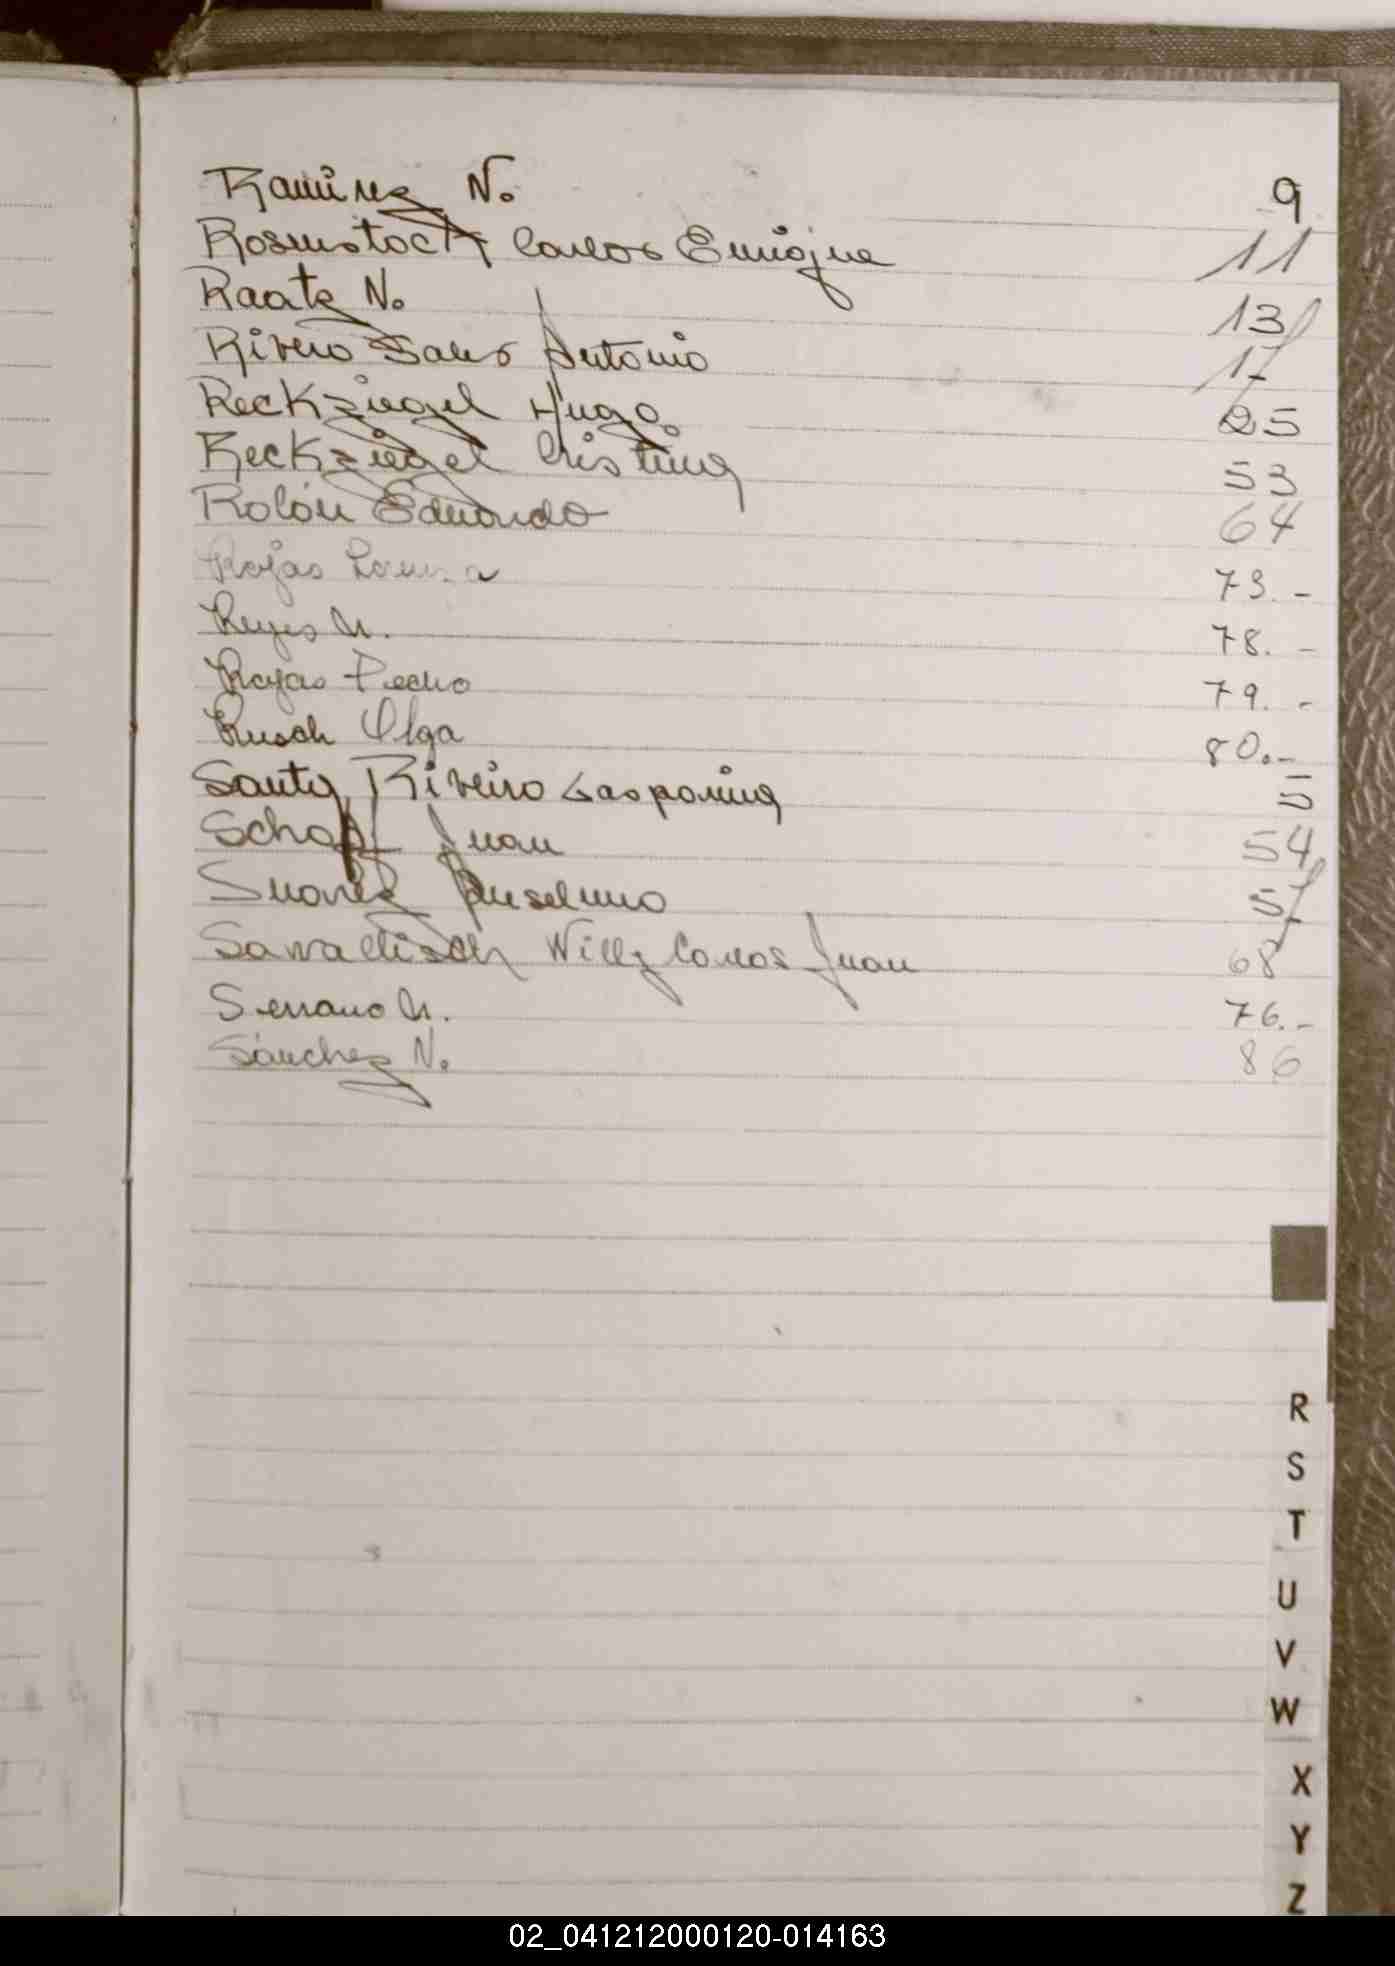 Ramirez N. 9
Rosenstock Carlos Enrique 11
Raatz N. 13
Rivero Antonio 17
Reckziegel Hugo 25
Reckziegel Cristina 53
Rolón Eduardo 64
Rojas 73.-
Reyes N. 78.-
Rojas Pedro 79.-
Rusch Olga 80.-
Santa Riveiro Gasparina 5
Schopf Juan 54
Suarez Anselmo 57
Sawallisch Willy Carlos Juan 68
Serrano N. 76.-
Sánchez N. 86
R
S
T
U
V
W
X
Y
Z
02_041212000120-014163